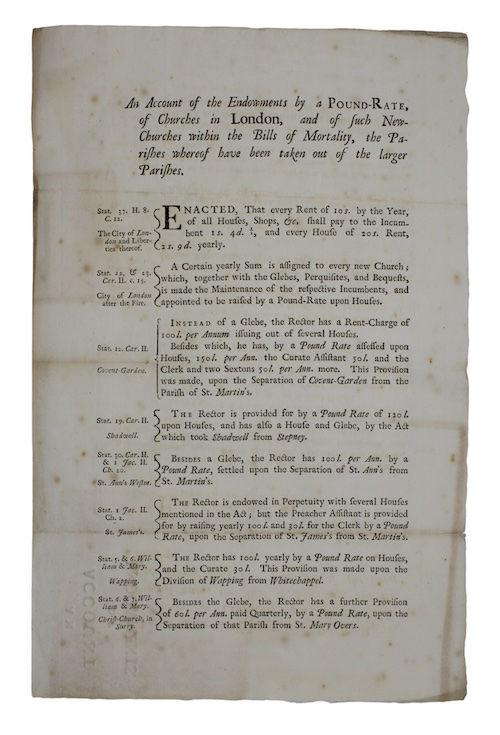 An Account of the Endowments by a POUND-RATE,
of Churches in London, and of ſuch New-
Churches within the Bills of Mortality, the Pa-
riſhes whereof have been taken out of the larger
Pariſhes.
Stat. 37. H. 8.
C. 12.
The City of Lon-
don and Liber-
ties thereof.
ENACTED, That every Rent of 10s. by the Year,
of all Houſes, Shops, &c. ſhall pay to the Incum-
bent 1s. 4d. ½, and every Houſe of 20s. Rent,
2s. 9d. yearly.
Stat. 22, & 23.
Car. II. c. 15.
City of London
after the Fire.
A Certain yearly Sum is aſſigned to every new Church;
which, together with the Glebes, Perquiſites, and Bequeſts,
is made the Maintenance of the reſpective Incumbents, and
appointed to be raiſed by a Pound-Rate upon Houſes.
Stat. 12. Car. II.
Covent-Garden.
INSTEAD of a Glebe, the Rector has a Rent-Charge of
100l. per Annum iſſuing out of ſeveral Houſes.
Beſides which, he has, by a Pound Rate aſſeſſed upon
Houſes, 150l. per Ann. the Curate Aſſiſtant 50l. and the
Clerk and two Sextons 50l. per Ann. more. This Proviſion
was made, upon the Separation of Covent-Garden from the
Pariſh of St. Martin's.
Stat. 19. Car. II.
Shadwell.
THE Rector is provided for by a Pound Rate of 120l.
upon Houſes, and has alſo a Houſe and Glebe, by the Act
which took Shadwell from Stepney.
Stat. 30. Car. II.
& 1 Jac. II.
Ch. 20.
St. Ann's Weſtm.
BESIDES a Glebe, the Rector has 100l. per Ann. by a
Pound Rate, ſettled upon the Separation of St. Ann's from
St. Martin's.
Stat. 1 Jac. II.
Ch. 2.
St. James's.
THE Rector is endowed in Perpetuity with ſeveral Houſes
mentioned in the Act; but the Preacher Aſſiſtant is provided
for by raiſing yearly 100l. and 30l. for the Clerk by a Pound
Rate, upon the Separation of St. James's from St. Martin's.
Stat. 5. & 6. Wil-
liam & Mary.
Wapping.
THE Rector has 100l. yearly by a Pound Rate on Houſes,
and the Curate 30l. This Proviſion was made upon the
Diviſion of Wapping from Whitechappel.
Stat. 6. & 7. Wil-
liam & Mary.
Chriſt-Church, in
Surry.
BESIDES the Glebe, the Rector has a further Proviſion
of 60l. per Ann. paid Quarterly, by a Pound Rate, upon the
Separation of that Pariſh from St. Mary Overs.